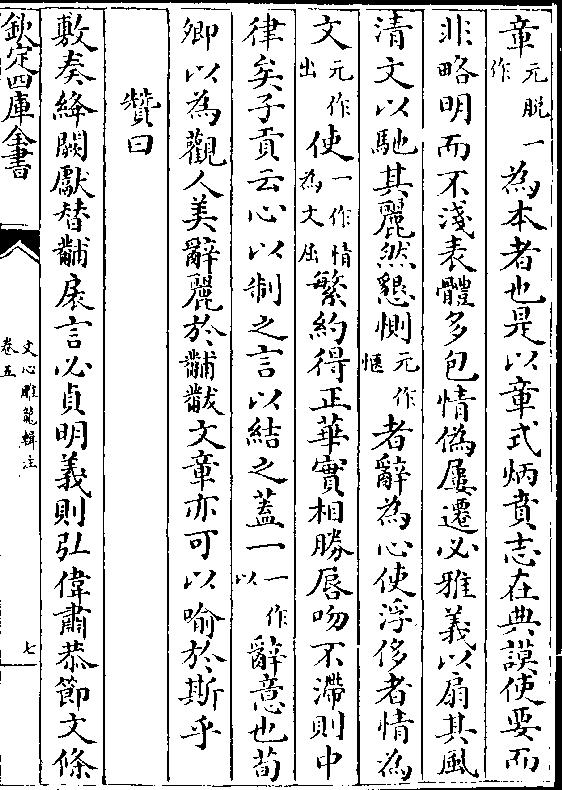 章元脱一作為本者也是以章式炳賁志在典謨使要而
非略明而不淺表體多包情偽屢遷必雅義以扇其風
清文以馳其麗然懇惻元作愜者辭為心使浮侈者情為
文元作出使一作情為文屈繁約得正華實相勝唇吻不滯則中
律矣子貢云心以制之言以結之蓋一一作以辭意也荀
卿以為觀人美辭麗於黼黻文章亦可以喻於斯乎
贊曰
敷奏絳闕獻替黼扆言必貞明義則弘偉肅恭節文條
欽定四庫全書
文心雕龍輯注
卷五
七